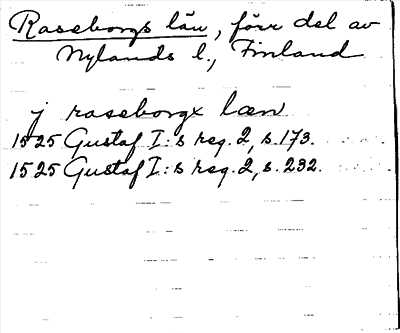 Raseborgs län, förr del av
Nylands l., Finland
j raseborgx læn
1525 Gustaf I:s reg. 2, s. 173.
1525 Gustaf I:s reg. 2, s. 232.